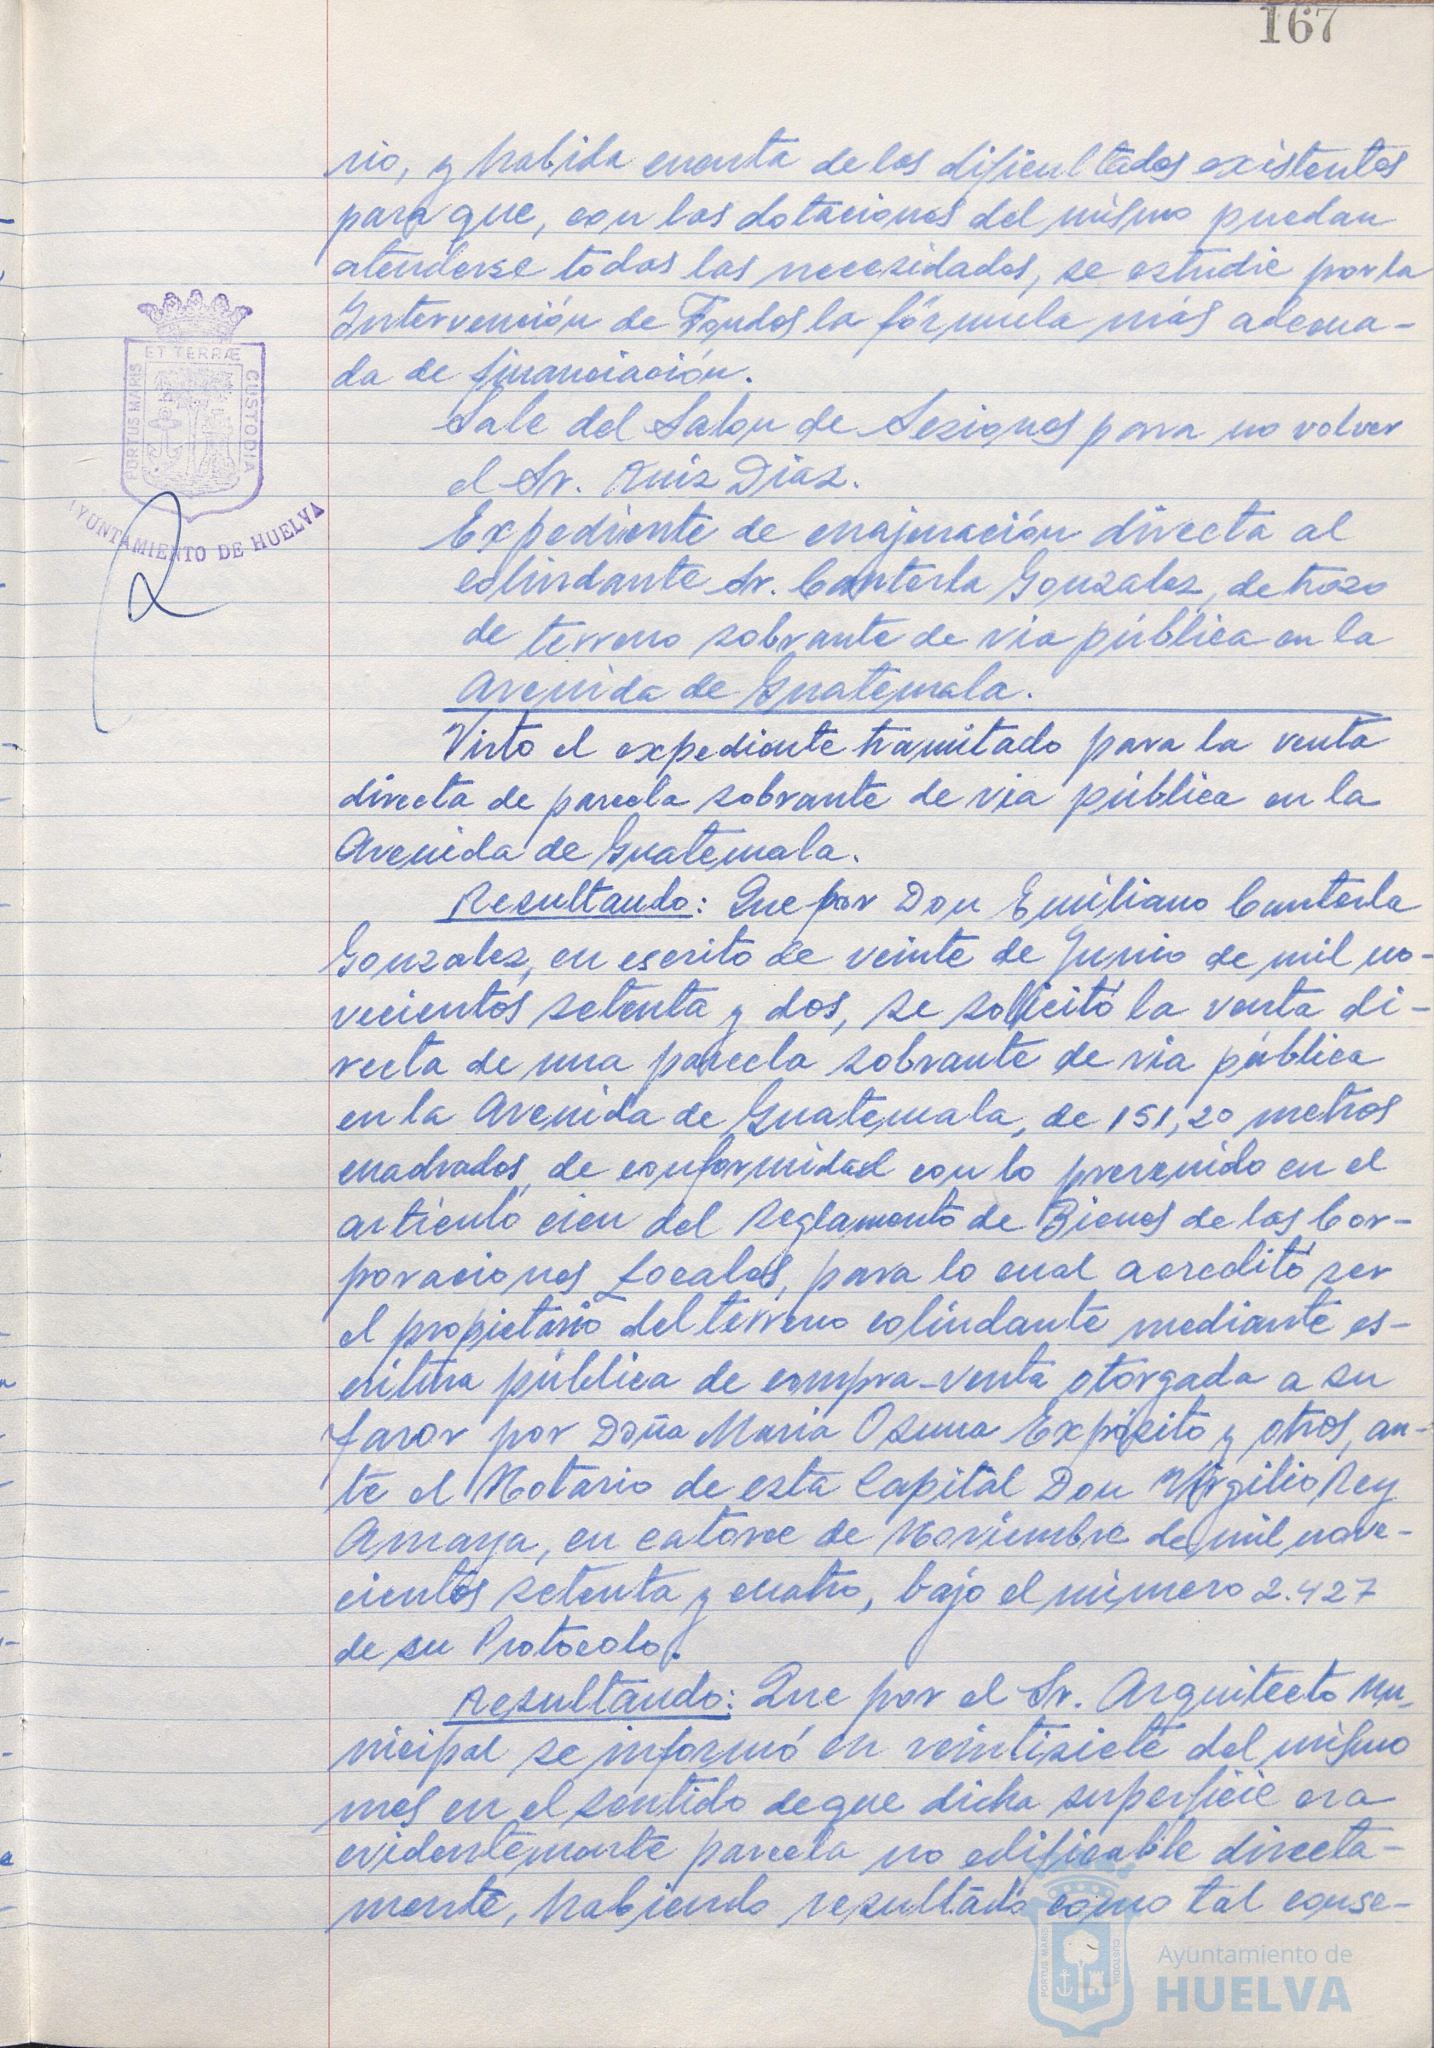 167
rio, y habida cuenta de las dificultades existentes
para que, con las dotaciones del mismo puedan
atenderse todas las necesidades, se estudie por la
Intervención de Fondos la fórmula más adecua-
da de financiación.
Sale del Salón de Sesiones para no volver
el Sr. Ruiz Diaz.
Expediente de enajenación directa al
colindante Sr. Canterla Gonzalez, de trozo
de terreno sobrante de via pública en la
Avenida de Guatemala.
Visto el expediente tramitado para la venta
directa de parcela sobrante de via pública en la
Avenida de Guatemala.
Resultando: Que por Don Emiliano Canterla
Gonzalez, en escrito de veinte de Junio de mil no-
vecientos setenta y dos, se solicitó la venta di-
recta de una parcela sobrante de via pública
en la Avenida de Guatemala, de 151,20 metros
cuadrados, de conformidad con lo prevenido en el
articulo cien del Reglamento de Bienes de las Cor-
poraciones Locales, para lo cual acreditó ser
el propietario del terreno colindante mediante es-
critura pública de compra-venta otorgada a su
favor por Doña Maria Osuna Expósito y otros, an-
te el Notario de esta Capital Don Virgilio Rey
Amaya, en catorce de Noviembre de mil nove-
cientos setenta y cuatro, bajo el número 2.427
de su Protocolo.
Resultando: Que por el Sr. Arquitecto Mu-
nicipal se informó en veintisiete del mismo
mes en el sentido de que dicha superficie era
evidentemente parcela no edificable directa-
mente, habiendo resultado como tal conse-
PORTUS MARIS
ET TERRÆ
CUSTODIA
AYUNTAMIENTO DE HUELVA
PORTUS MARIS
CUSTODIA
Ayuntamiento de
HUELVA